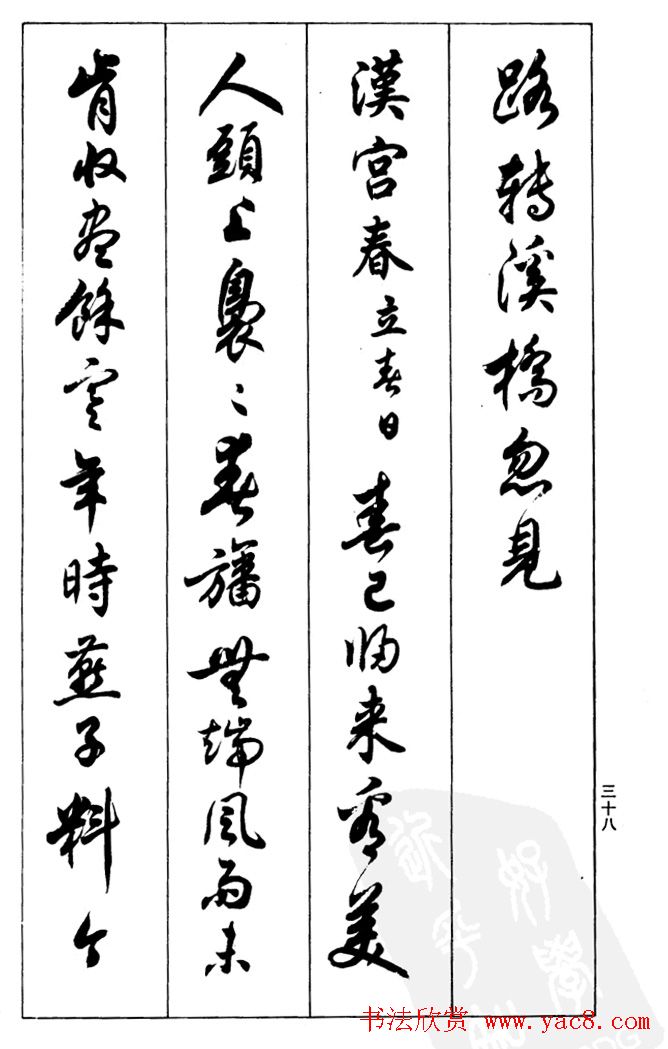 路轉溪橋忽見
漢宮春立春日 春已归来看美
人頭上裊〻春旛無端風雨未
肯收盡餘寒年時燕子料今
三十八
书法欣赏 www.yac8.com